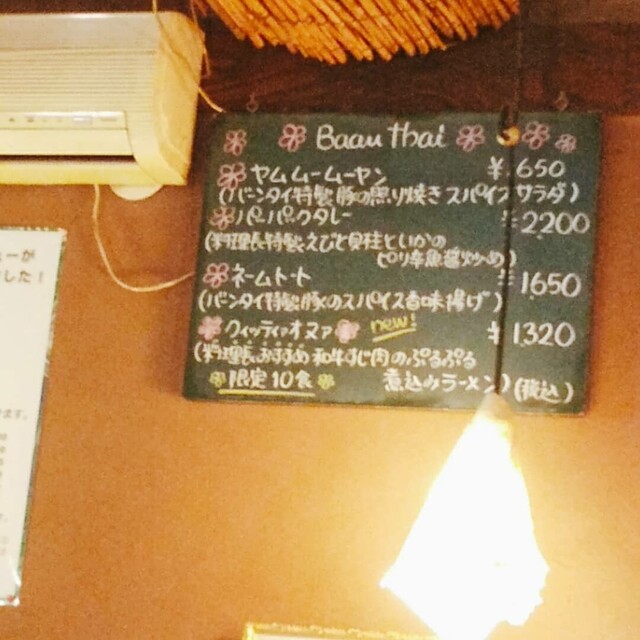 Baan thai
ヤムムームーヤン ¥650
(バーンタイ特製豚の照り焼きスパイスサラダ)
パーパックタレー 2200
(料理長特製えびと貝柱といかの
ピリ辛魚醤炒め)
ネームトート 1650
(バーンタイ特製豚のスパイス香味揚げ)
クィッティァオヌァ new! ¥1320
(料理長おすすめ和牛すじ肉のぷるぷる
限定10食 煮込みラーメン) (税込)
ーが
した!
きます。